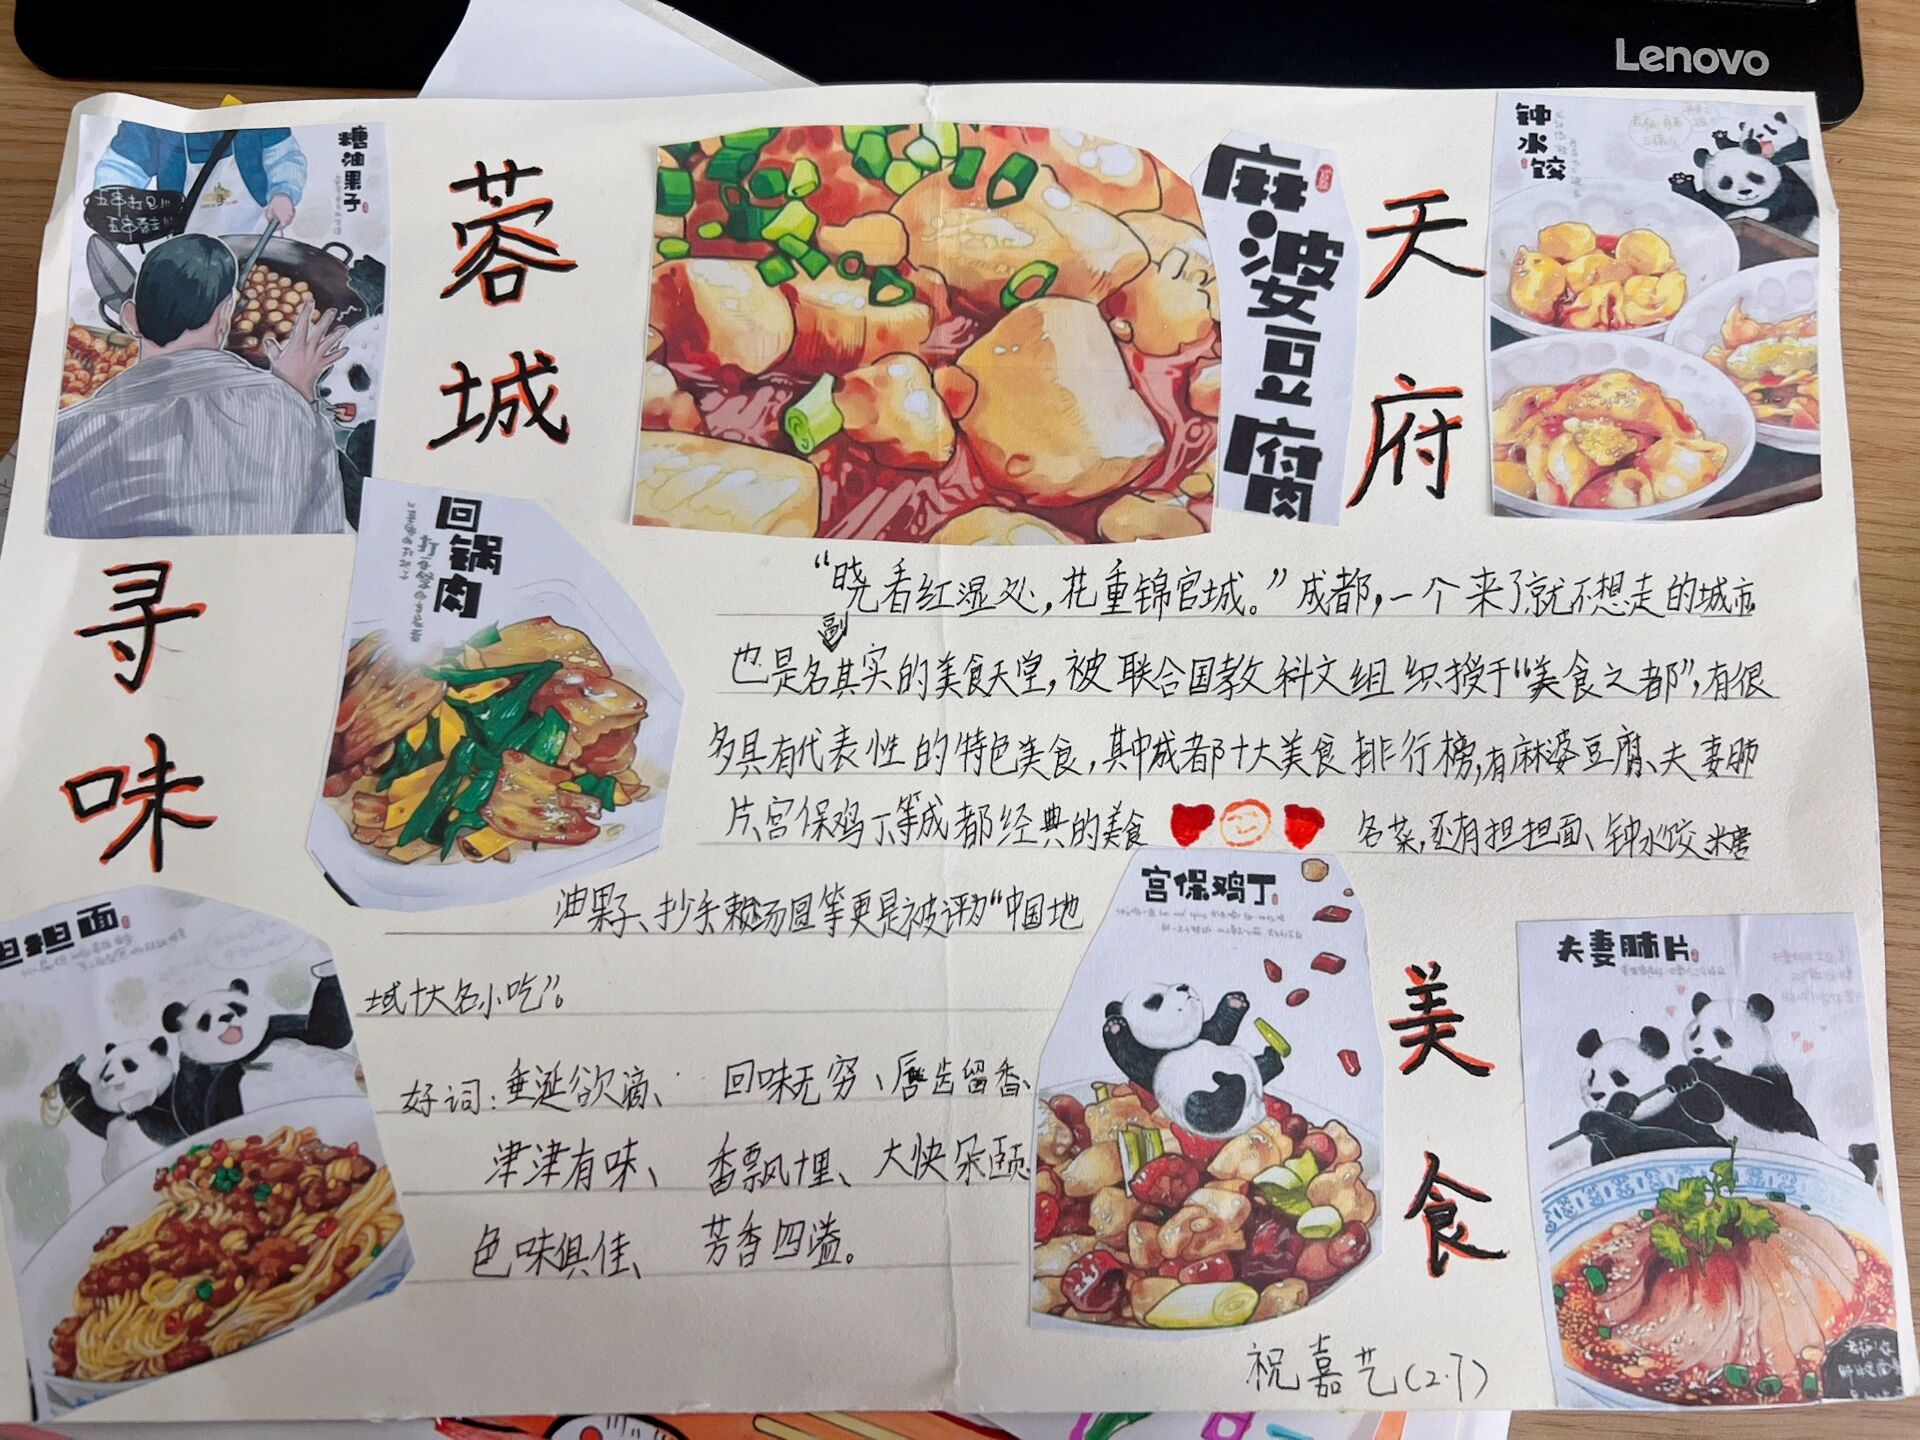 Lenovo
糖油果子
蓉城
麻婆豆腐
天府
钟水饺
回锅肉
寻味
“晓看红湿处,花重锦官城。”成都,一个来了就不想走的城市
副
也是名其实的美食天堂,被联合国教科文组织授于“美食之都”,有很
多具有代表性的特色美食,其中成都十大美食排行榜,有麻婆豆腐、夫妻肺
片、宫保鸡丁等成都经典的美食 名菜,还有担担面、钟水饺、糖
油果子、抄手、赖汤圆等更是被评为“中国地
域十大名小吃”。
好词:垂涎欲滴、 回味无穷、唇齿留香、
津津有味、 香飘十里、大快朵颐
色味俱佳、 芳香四溢。
担担面
宫保鸡丁
美食
夫妻肺片
祝嘉艺(2.7)